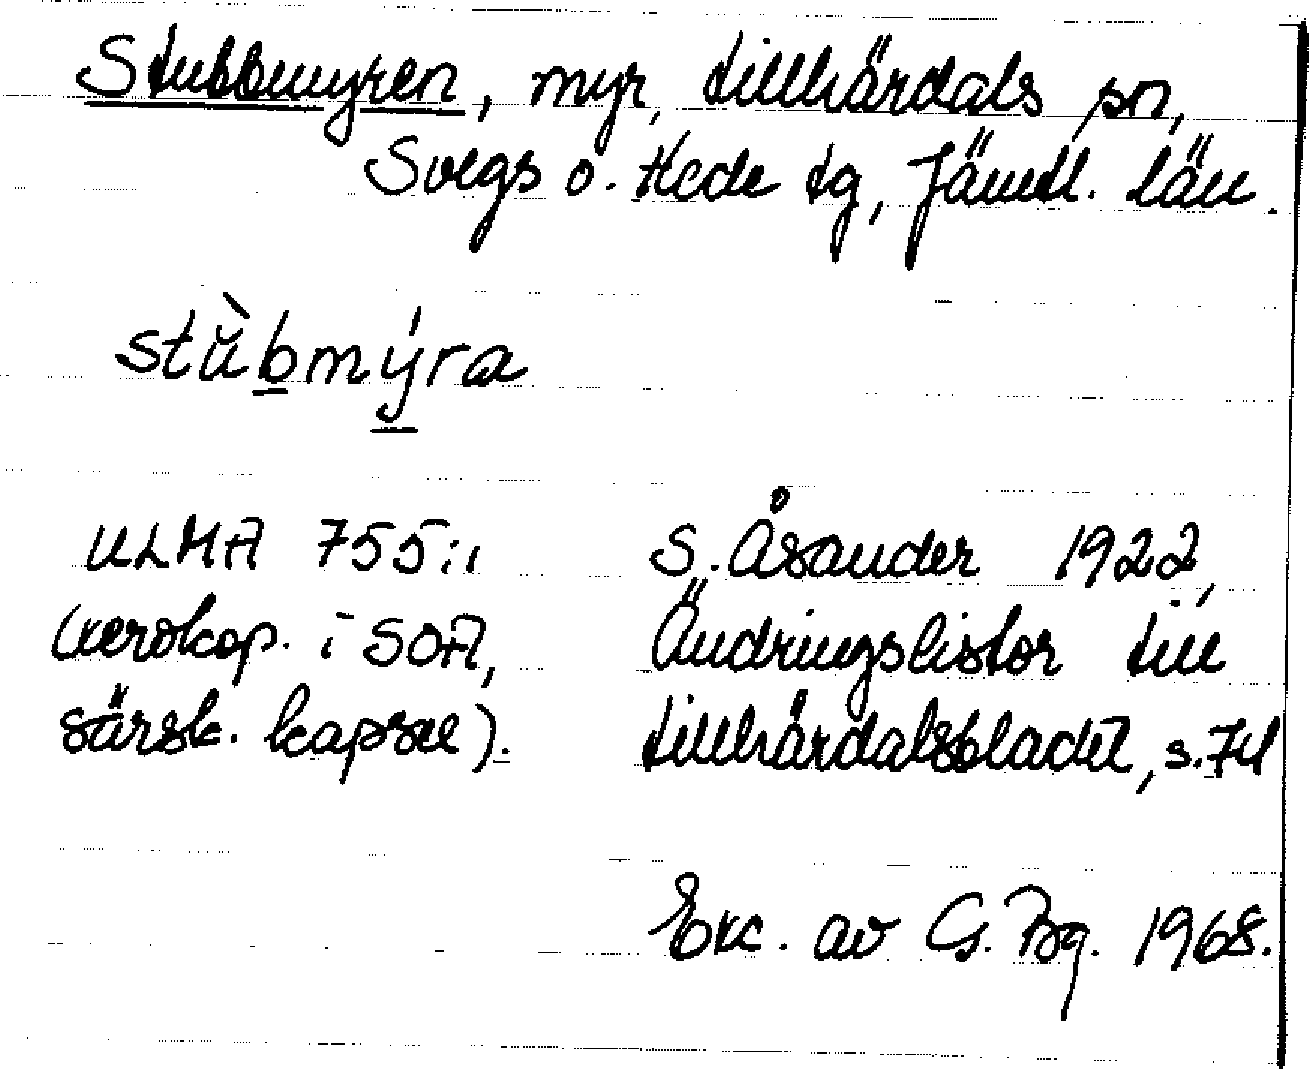 Stubbmyren, myr, Lillhärdals sn,
Svegs o. Hede tg, Jämtl. län.
stùbmýra
ULMA 755:1 S. Åsander 1922,
(xerokop. i SOA, Ändringslistor till
särsk. kapsel). Lillhärdalsbladet, s.74
Exc. av G. Bg. 1968.